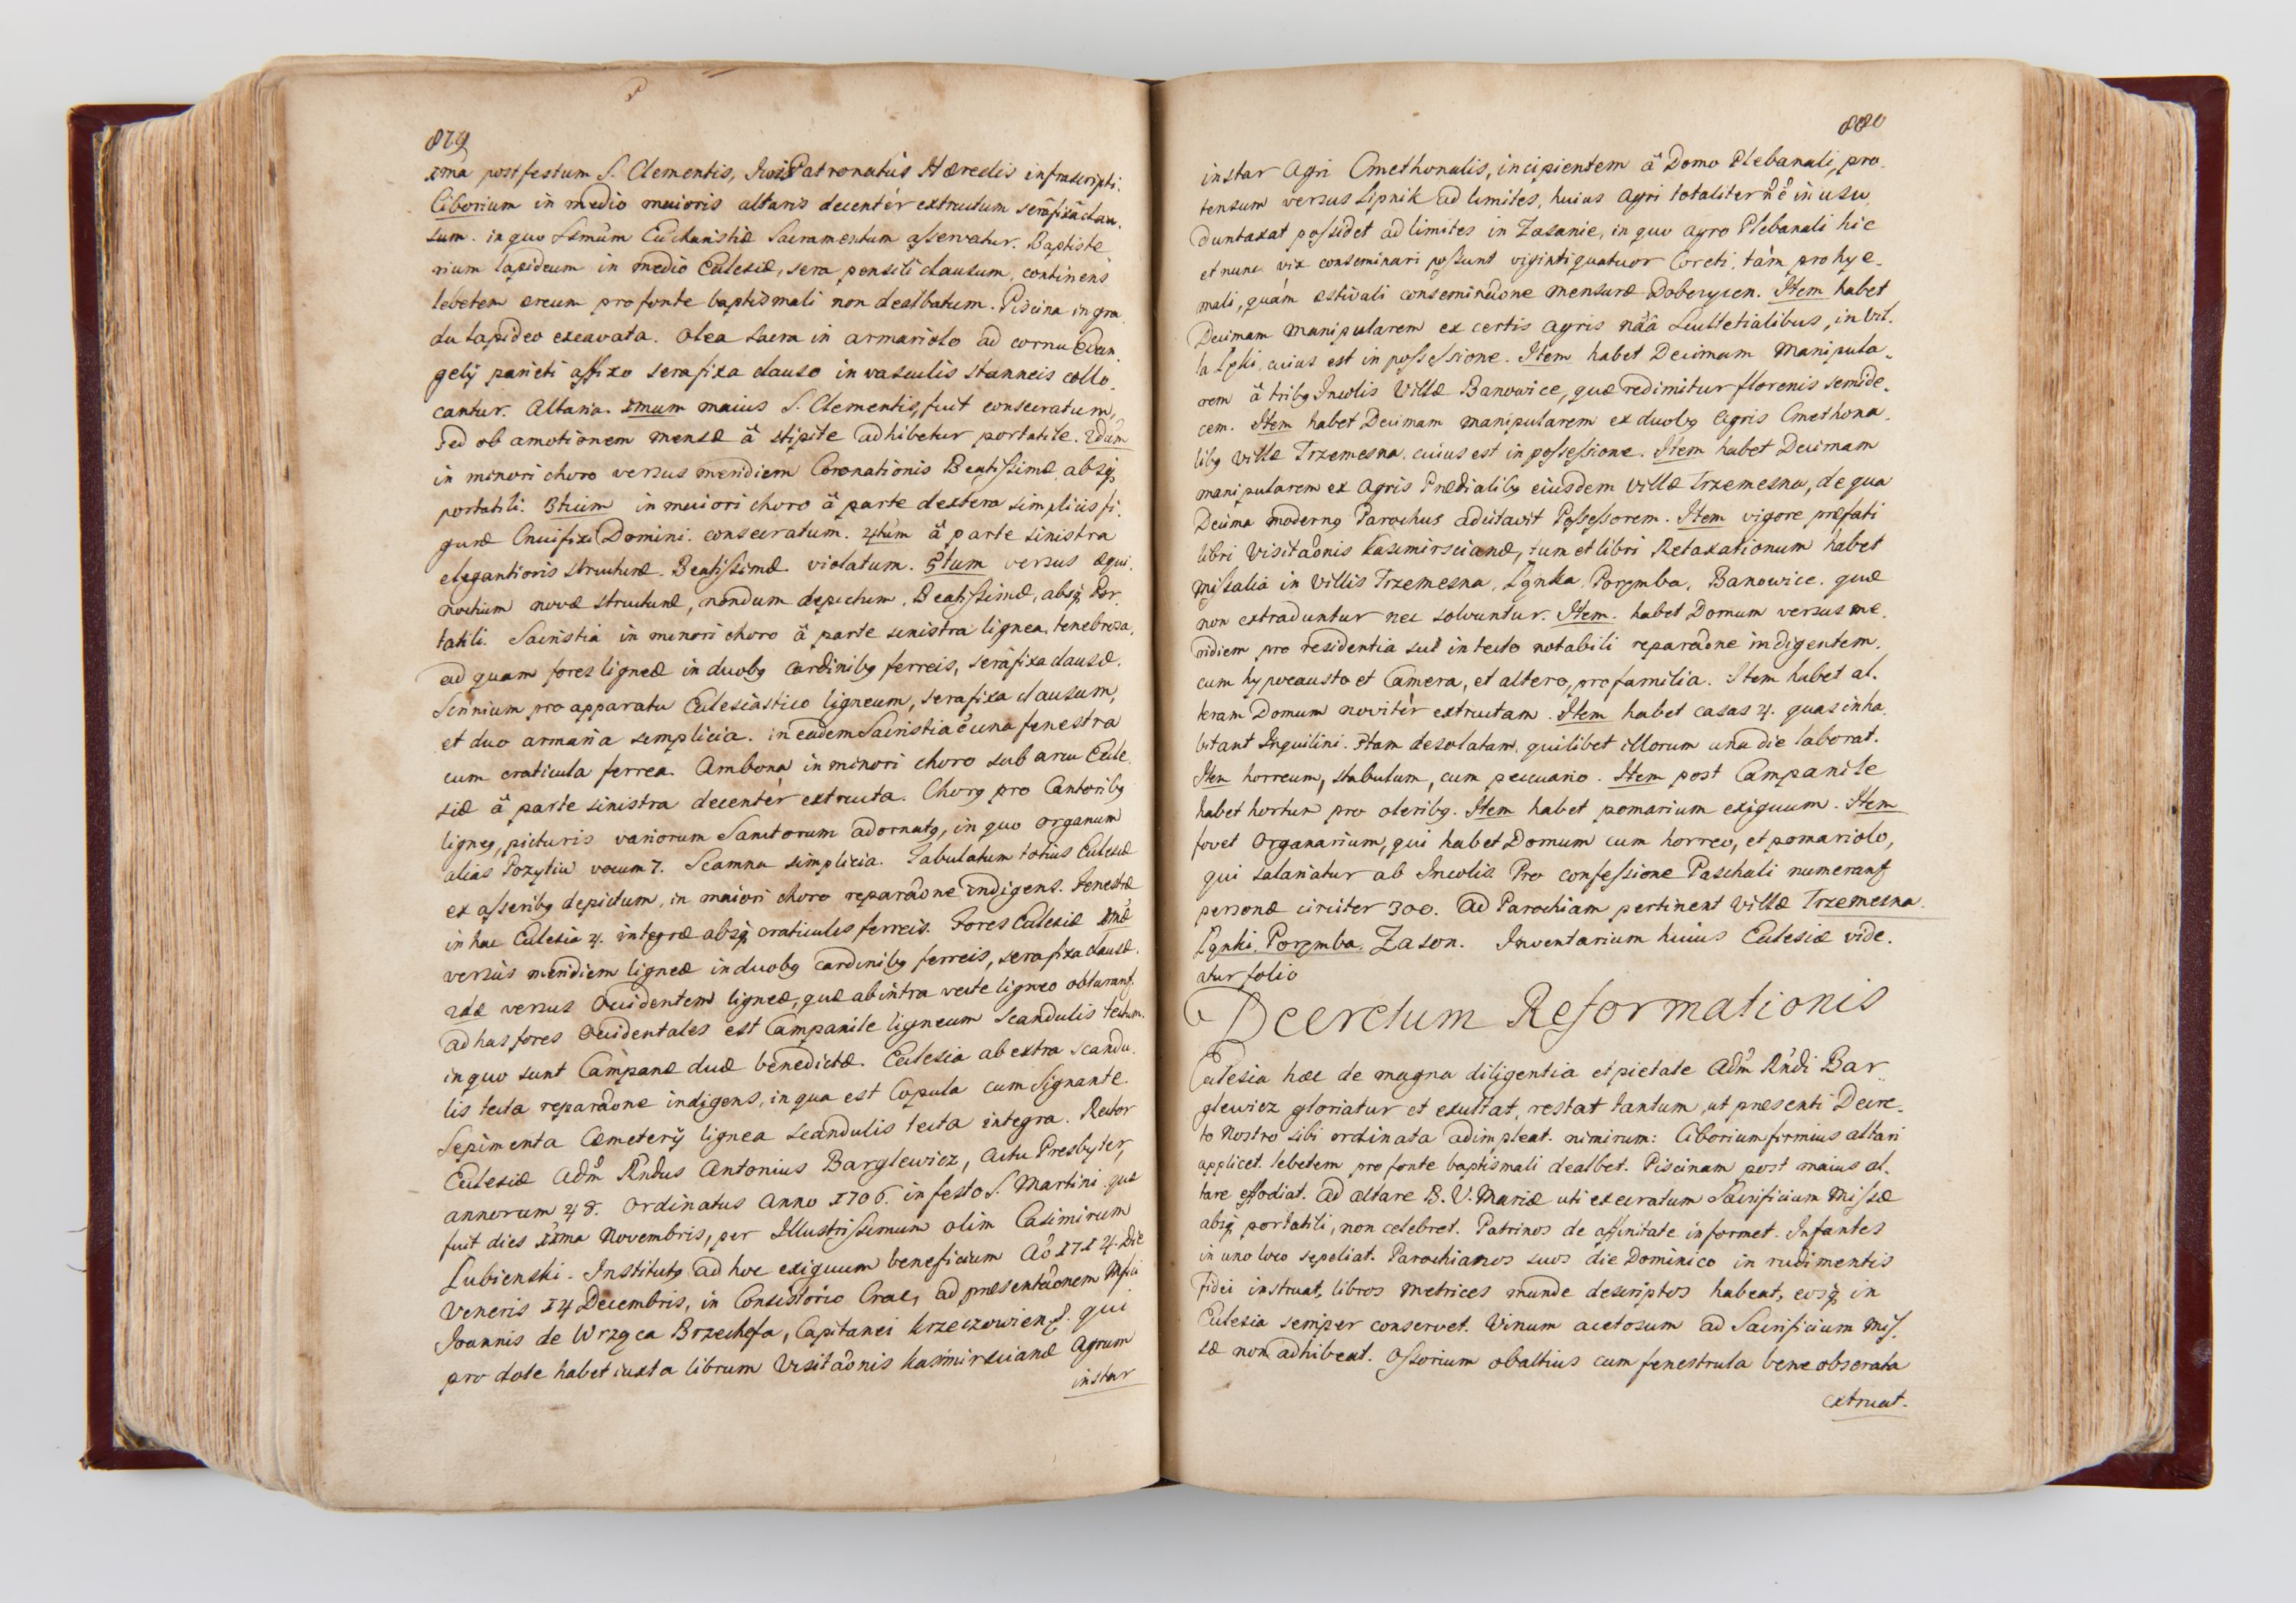 879
1ma post festum S. Clementis, Juris Patronatus Hæredis infrascripti.
Ciborium in medio maioris altaris decentèr extructum serâ fixâ clau-
sum. in quo SSmum Eucharistiæ Sacramentum asservatur. Baptiste-
rium lapideum in medio Ecclesiæ, sera pensili clausum, continens
lebetem æreum pro fonte baptismali non dealbatum. Piscina in gra-
du lapideo excavata. Olea sacra in armariolo ad cornu Evan-
gelÿ parieti affixo sera fixa clauso in vasculis stanneis collo-
cantur. Altaria. 1mum maius S. Clementis, fuit consecratum,
sed ob amotionem mensæ â stipite adhibetur portatile. 2dum
in minori choro versus meridiem Coronationis Beatissimæ absq
portatili. 3tium in maiori choro â parte dextera simplicis fi-
guræ Crucifixi Domini. consecratum. 4tum â parte sinistra
elegantioris structuræ. Beatissimæ. violatum. 5tum versus æqui-
noctium novæ structuræ, nondum depictum, Beatissimæ, absq Por-
tatili. Sacristia in minori choro â parte sinistra lignea, tenebrosa,
ad quam fores ligneæ in duobq cardinibq ferreis, serâ fixa clausæ.
Scrinium pro apparatu Ecclesiastico ligneum, sera fixa clausum,
et duo armaria simplicia. in eadem Sacristia ẽ una fenestra
cum craticula ferrea. Ambona in minori choro sub arcu Eccle-
siæ â parte sinistra decentèr extructa. Chorq pro Cantoribq
ligneq, picturis variorum Sanctorum adornatq, in quo organum
alias Pozytiw vocum 7. Scamna simplicia. Tabulatum totius Ecclesiæ
ex asseribq depictum, in maiori choro reparaõne indigens. Fenestræ
in hac Ecclesia 4. integræ absq craticulis ferreis. Fores Ecclesiæ 1mæ
versùs meridiem ligneæ in duobq cardinibq ferreis, sera fixa clausæ.
2dæ versus Occidentem ligneæ, quæ ab intra vecte ligneo obturantr.
ad has fores Occidentales est Campanile ligneum scandulis tectum.
in quo sunt Campanæ duæ benedictæ. Ecclesia ab extra scandu-
lis tecta reparaõne indigens, in qua est Copula cum Signante.
Sepimenta Cæmeterÿ lignea scandulis tecta integra. Rector
Ecclesiæ Adm̃ Rñdus Antonius Barglewicz, actu Presbyter,
annorum 48. ordinatus Anno 1706. in festo S. Martini quæ
fuit dies 11ma Novembris, per Illustrissimum olim Casimirum
Łubienski. Institutq ad hoc exiguum beneficium Aõ 1714. Die
Veneris 14 Decembris, in Consistorio Crac, ad præsentaõnem Mfici
Joannis de Wrzqca Brzechffa, Capitanei Krzeczowien. qui
pro dote habet iuxta librum Visitaõnis Kasimirscianæ Agrum
instar
880
instar Agri Cmethonalis, incipientem â Domo Plebanali, pro-
tensum versus Lipnik ad limites, huius Agri totaliter nõ ẽ in usu,
duntaxat possidet ad limites in Zasanie, in quo agro Plebanali hic
et nunc vix conseminari possunt vigintiquatuor Coreti, tàm pro hye-
mali, quàm æstivali conseminaõne mensuræ Dobczycen. Item habet
Decimam Manipularem ex certis agris nãa Scultetialibus, in vil-
la Lqki, cuius est in possessione. Item habet Decimam Manipula-
rem â tribq Incolis Villæ Banowice, quæ redimitur florenis semide-
cem. Item habet Decimam manipularem ex duobq Agris Cmethona-
libq villæ Trzemesna, cuius est in possessione. Item habet Decimam
manipularem ex Agris Prædialibq eiusdem villæ Trzemesna, de qua
Decima modernq Parochus adcitavit Possessorem. Item vigore præfati
libri Visitaõnis Kasimirscianæ, tum et libri Retaxationum habet
missalia in villis Trzemesna, Lqnka, Porzmba, Banowice. quæ
non extraduntur nec solvuntur. Item. habet Domum versus me-
ridiem pro residentia sui in tecto notabili reparaõne indigentem.
cum hypocausto et Camera, et altero, pro familia. Item habet al-
teram Domum novitèr extructam. Item habet casas 4. quas inha-
bitant Inquilini. 5tam desolatam. quilibet illorum una die laborat.
Item horreum, stabulum, cum pecuario. Item post Campanile
habet hortum pro oleribq. Item habet pomarium exiguum. Item
fovet Organarium, qui habet Domum cum horreo, et pomariolo,
qui salariatur ab Incolis Pro confessione Paschali numerantr
personæ circiter 300. Ad Parochiam pertinent Villæ Trzemesna
Lqnki, Porzmba, Zason. Inventarium huius Ecclesiæ vide-
atur folio
Decretum Reformationis
Ecclesia hæc de magna diligentia et pietate Adm̃ Rñdi Bar-
glewicz gloriatur et exultat, restat tantum, ut præsenti Decre-
to Nostro sibi ordinata adimpleat. nimirum: Ciborium firmius altari
applicet. lebetem pro fonte baptismali dealbet. Piscinam post maius al-
tare effodiat. Ad altare B. V. Mariæ uti execratum Sacrificium Missæ
absq portatili, non celebret. Patrinos de affinitate informet. Infantes
in uno loco sepeliat. Parochianos suos die Dominico in rudimentis
fidei instruat, libros Metrices munde descriptos habeat, eosq in
Ecclesia semper conservet. Vinum acetosum ad Sacrificium Mis-
sæ non adhibeat. Ossorium obaltius cum fenestrula bene obserata
extruat.